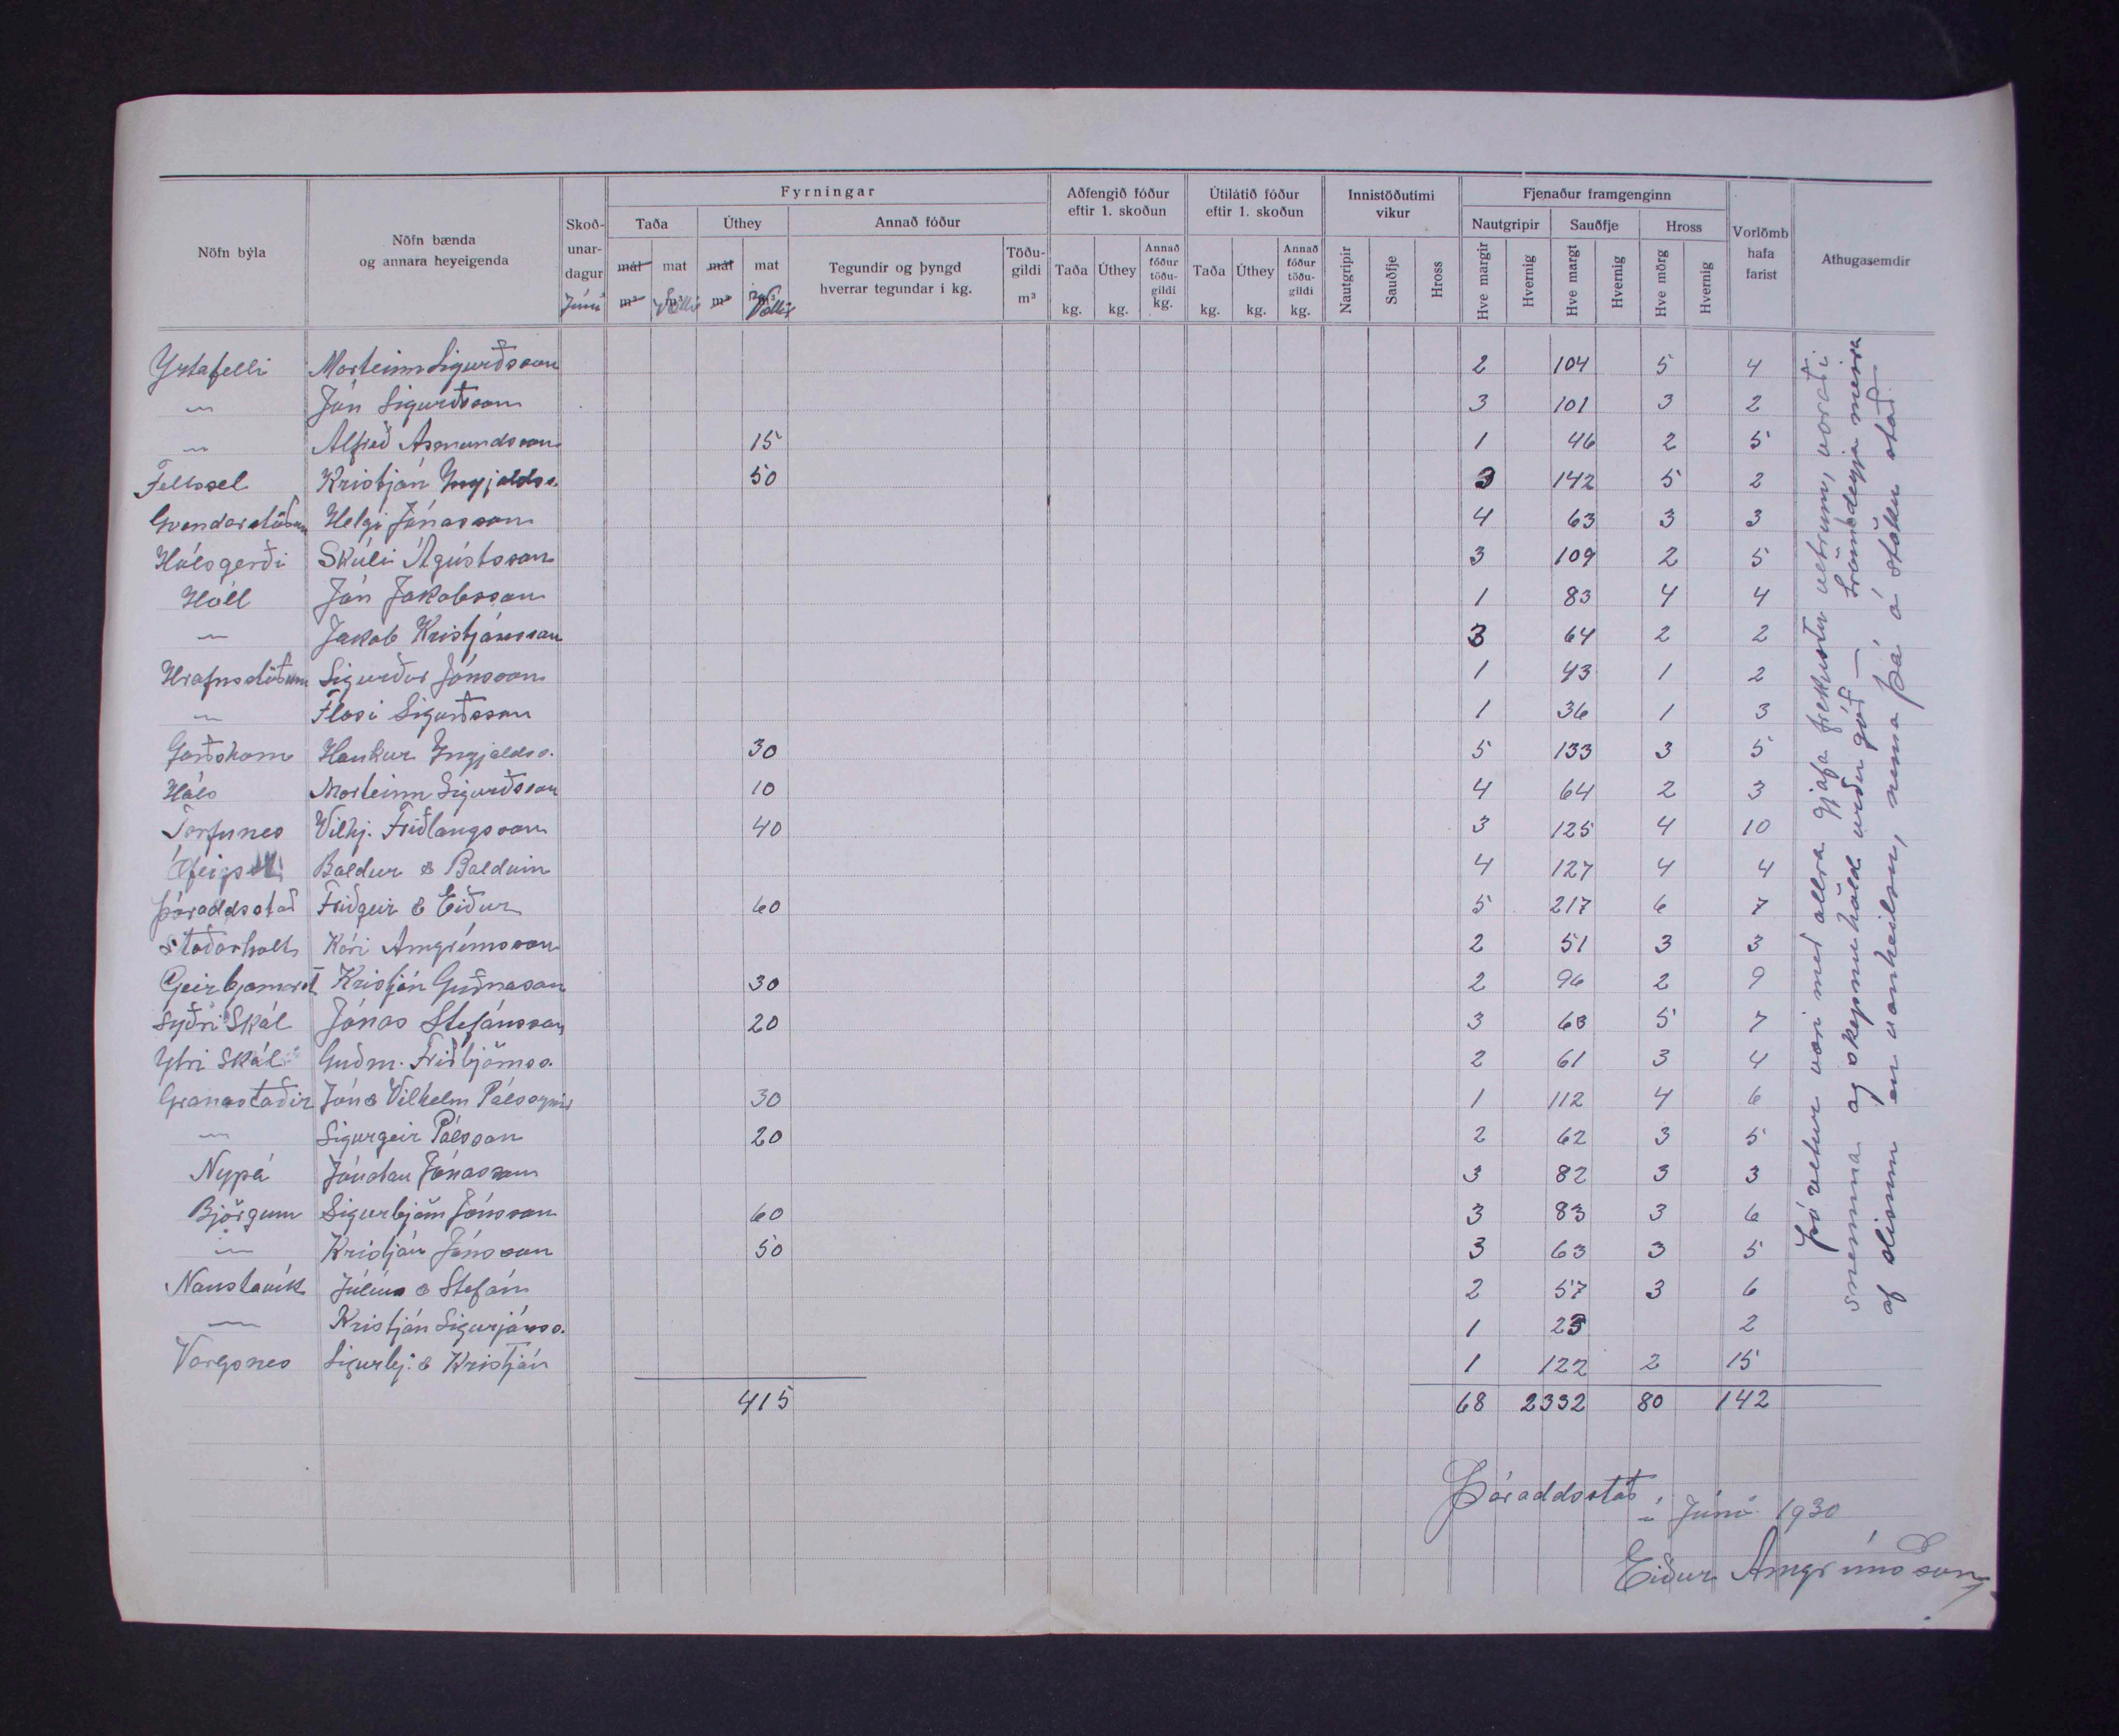 Fyrningar
Aðfengið fóður eftir 1. skoðun
Útilátið fóður eftir 1. skoðun
Innistöðutími vikur
Fjenaður framgenginn
Nöfn býla
Nöfn bænda og annara heyeigenda
Skoðunardagur Júní
Taða
Úthey
Annað fóður
Nautgripir
Sauðfje
Hross
Vorlömb hafa farist
Athugasemdir
mál m³
mat m³ Vættir
mál m³
mat m³ Vættir
Tegundir og þyngd hverrar tegundar í kg.
Töðugildi m³
Taða kg.
Úthey kg.
Annað fóður töðugildi kg.
Taða kg.
Úthey kg.
Annað fóður töðugildi kg.
Nautgripir
Sauðfje
Hross
Hve margir
Hvernig
Hve margt
Hvernig
Hve mörg
Hvernig
Ystafelli Marteinn Sigurðsson 2 104 5 4
〃 Jón Sigurðsson 3 101 3 2
〃 Alfreð Asmundsson 15 1 46 2 5
Fellssel Kristján Ingjaldss. 50 3 142 5 2
Gvendarstöðum Helgi Jónasson 4 63 3 3
Hálsgerði Skúli Ágústsson 3 109 2 5
Hóll Jón Jakobsson 1 83 4 4
〃 Jakob Kristjánsson 3 64 2 2
Hrafnsstöðum Sigurður Jónsson 1 43 1 2
〃 Flosi Sigurðsson 1 36 1 3
Garðshorn Haukur Ingjaldss. 30 5 133 3 5
Háls Marteinn Sigurðsson 10 4 64 2 3
Torfunes Vilhj. Friðlaugsson 40 3 125 4 10
Baldur & Balduin 4 127 4 4
Þóroddsstað Friðgeir & Eiður 60 5 217 6 7
Staðarholt Kári Arngrímsson 2 51 3 3
Geirbjarnarst Kristján Guðnason 30 2 96 2 9
Syðri Skál Jónas Stefánsson 20 3 63 5 7
Ytri Skál Guðm. Friðbjörnss. 2 61 3 4
Granastaðir Jón & Vilhelm Pálssynir 30 1 112 4 6
〃 Sigurgeir Pálsson 20 2 62 3 5
Nypá Jónatan Jónasson 3 82 3 3
Björgum Sigurbjörn Jónsson 60 3 83 3 6
〃 Kristján Jónsson 50 3 63 3 5
Naustavík Júlíus & Stefán 2 57 3 6
〃 Kristján Sigurjónss. 1 23 2
Vargsnes Sigurbj. & Kristján 1 122 2 15
415 68 2332 80 142
Þó vetur væri með allra gjafa frekustu vetrum, voraði
snemma og skepnuhöld urðu góð — meira
af slisum en vanheilsu, nema þá á stöku stað —
Þóroddsstað
í Júní 1930
Eiður Arngrímsson